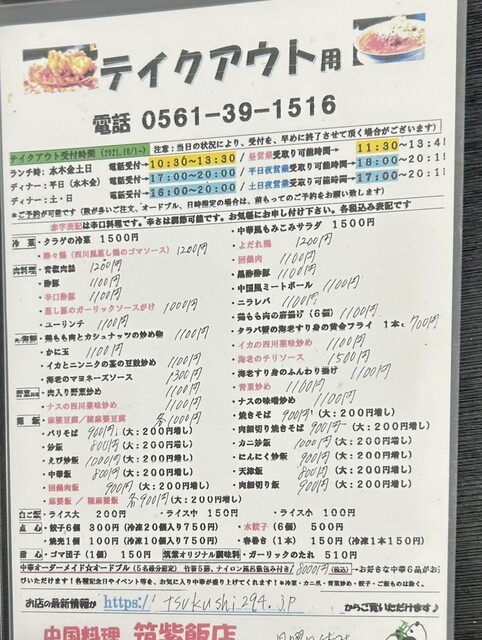 テイクアウト用
電話 0561-39-1516
テイクアウト受付時間 (2021.10/1~) 注意:当日の状況により、受付を、早めに終了させて頂く場合がございます)
ランチ時: 水木金土日 電話受付→ 10:30~13:30 / 昼営業受取り可能時間→ 11:30~13:4
ディナー: 平日(水木金) 電話受付→ 17:00~20:00 / 平日夜営業受取り可能時間→ 18:00~20:1
ディナー: 土・日 電話受付→ 16:00~20:00 / 土日夜営業受取り可能時間→ 17:00~20:1
※ご予約が可能です(数が多いご注文、オードブル、日時指定の場合は、前もってのご予約をお願い致します)
赤字表記は辛口料理です。辛さは調節可能です。お気軽にお申し付け下さい。各税込み表記です
冷菜 ・クラゲの冷菜 1500円 ・中華風もみこみサラダ 1500円
・棒々鶏(四川風蒸し鶏のゴマソース) 1200円 ・よだれ鶏 1200円
肉料理 ・青椒肉絲 1200円 ・回鍋肉 1100円
・酢豚 1100円 ・黒酢酢豚 1100円
・辛口酢豚 1100円 ・中国風ミートボール 1100円
・蒸し豚のガーリックソースがけ 1000円 ・ニラレバ 1100円
・ユーリンチ 1100円 ・鶏もも肉の唐揚げ(6個) 1100円
・鶏もも肉とカシュナッツの炒め物 1100円 ・タラバ蟹の海老すり身の黄金フライ 1本 700円
・かに玉 1100円 ・イカの四川薬味炒め 1100円
・イカとニンニクの茎の豆豉炒め 1100円 ・海老のチリソース 1500円
・海老のマヨネーズソース 1300円 ・海老すり身のふんわり揚げ 1100円
野菜料理 ・肉入り野菜炒め 1100円 ・青菜炒め 1100円
・ナスの四川薬味炒め 1100円 ・ナスの味噌炒め 1100円
・麻婆豆腐/陳麻婆豆腐 各1000円 ・焼きそば 900円(大:200円増し)
麺飯 ・バリそば 900円(大:200円増し) ・肉細切り焼きそば 900円(大:200円増し)
・炒飯 800円(大:200円増し) ・カニ炒飯 1000円(大:200円増し)
・えび炒飯 1000円(大:200円増し) ・にんにく炒飯 900円(大:200円増し)
・中華飯 800円(大:200円増し) ・天津飯 800円(大:200円増し)
・回鍋肉飯 900円(大:200円増し) ・肉細切り飯 900円(大:200円増し)
・麻婆飯/陳麻婆飯 各900円(大:200円増し)
白ご飯 ・ライス大 200円 ・ライス中 150円 ・ライス小 100円
点心 ・餃子6個 300円(冷凍20個入り750円) ・水餃子(6個) 500円
・焼売1個 100円(冷凍10個入り750円) ・春巻き(1本) 150円(冷凍5本入り750円)
甜心 ・ゴマ団子(1個) 150円 筑紫オリジナル調味料 ・ガーリックのたれ 510円
中華オーダーメイド☆オードブル(5名様分限定) 竹箸5膳、ナイロン風呂敷包み付き/8000円(税込) →お好きな中華6品がお
びいただけます!各種記念日やイベント等を、お気に入り中華が盛り上げてくれます!※冷菜・カニ爪・青菜炒め・餃子・ご飯ものは除く。
お店の最新情報が https://tsukushi294.jp からご覧いただけます♪
中国料理 筑紫飯店